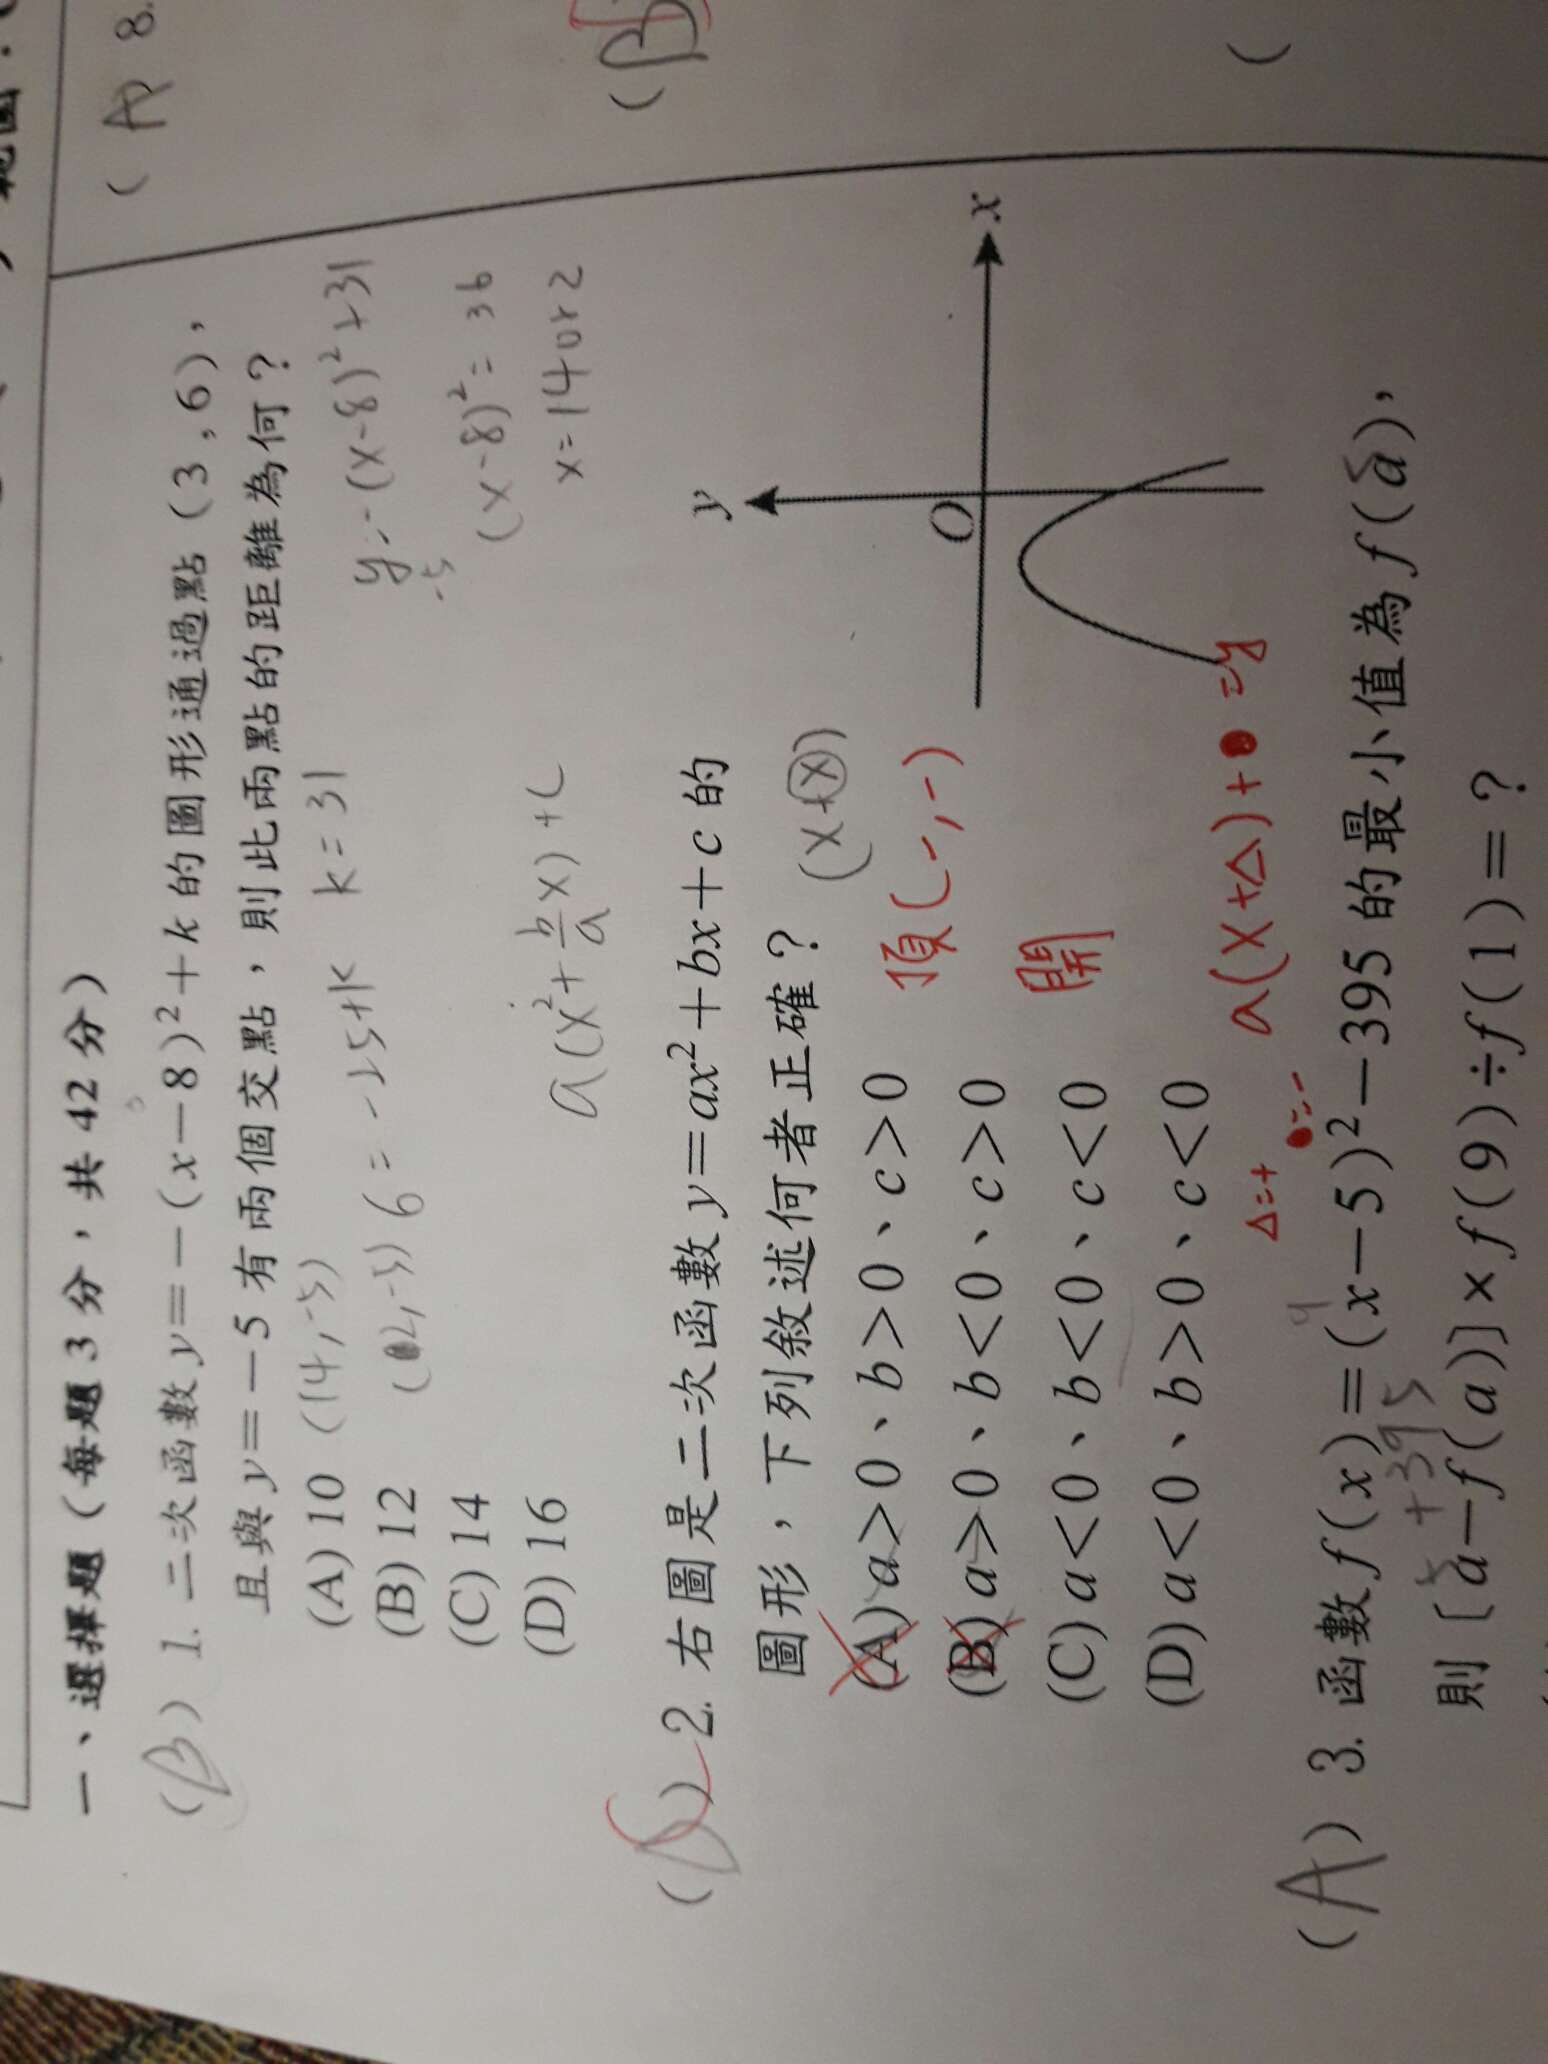 一、選擇題（每題 3 分，共 42 分）
(B) 1. 二次函數 y=-(x-8)²+k 的圖形通過點 (3,6)，
且與 y=-5 有兩個交點，則此兩點的距離為何？
(A) 10 (14,-5) 6=-25+k k=31 y=-(x-8)²+31
-5
(B) 12 (2,-5) (x-8)²=36
(C) 14 x=14 or 2
(D) 16 a(x²+b/a x)+c
2. 右圖是二次函數 y=ax²+bx+c 的
圖形，下列敘述何者正確？ (x+x)
(A) a>0、b>0、c>0 頂(-,-)
(B) a>0、b<0、c>0 開
(C) a<0、b<0、c<0
(D) a<0、b>0、c<0 a(x+△)+●=y
△=+ ●=-
y
O
x
(A) 3. 函數 f(x)=(x-5)²-395 的最小值為 f(a)，
5
5 +395
則〔a-f(a)〕×f(9)÷f(1)=？
(A) 8.
(B)
(